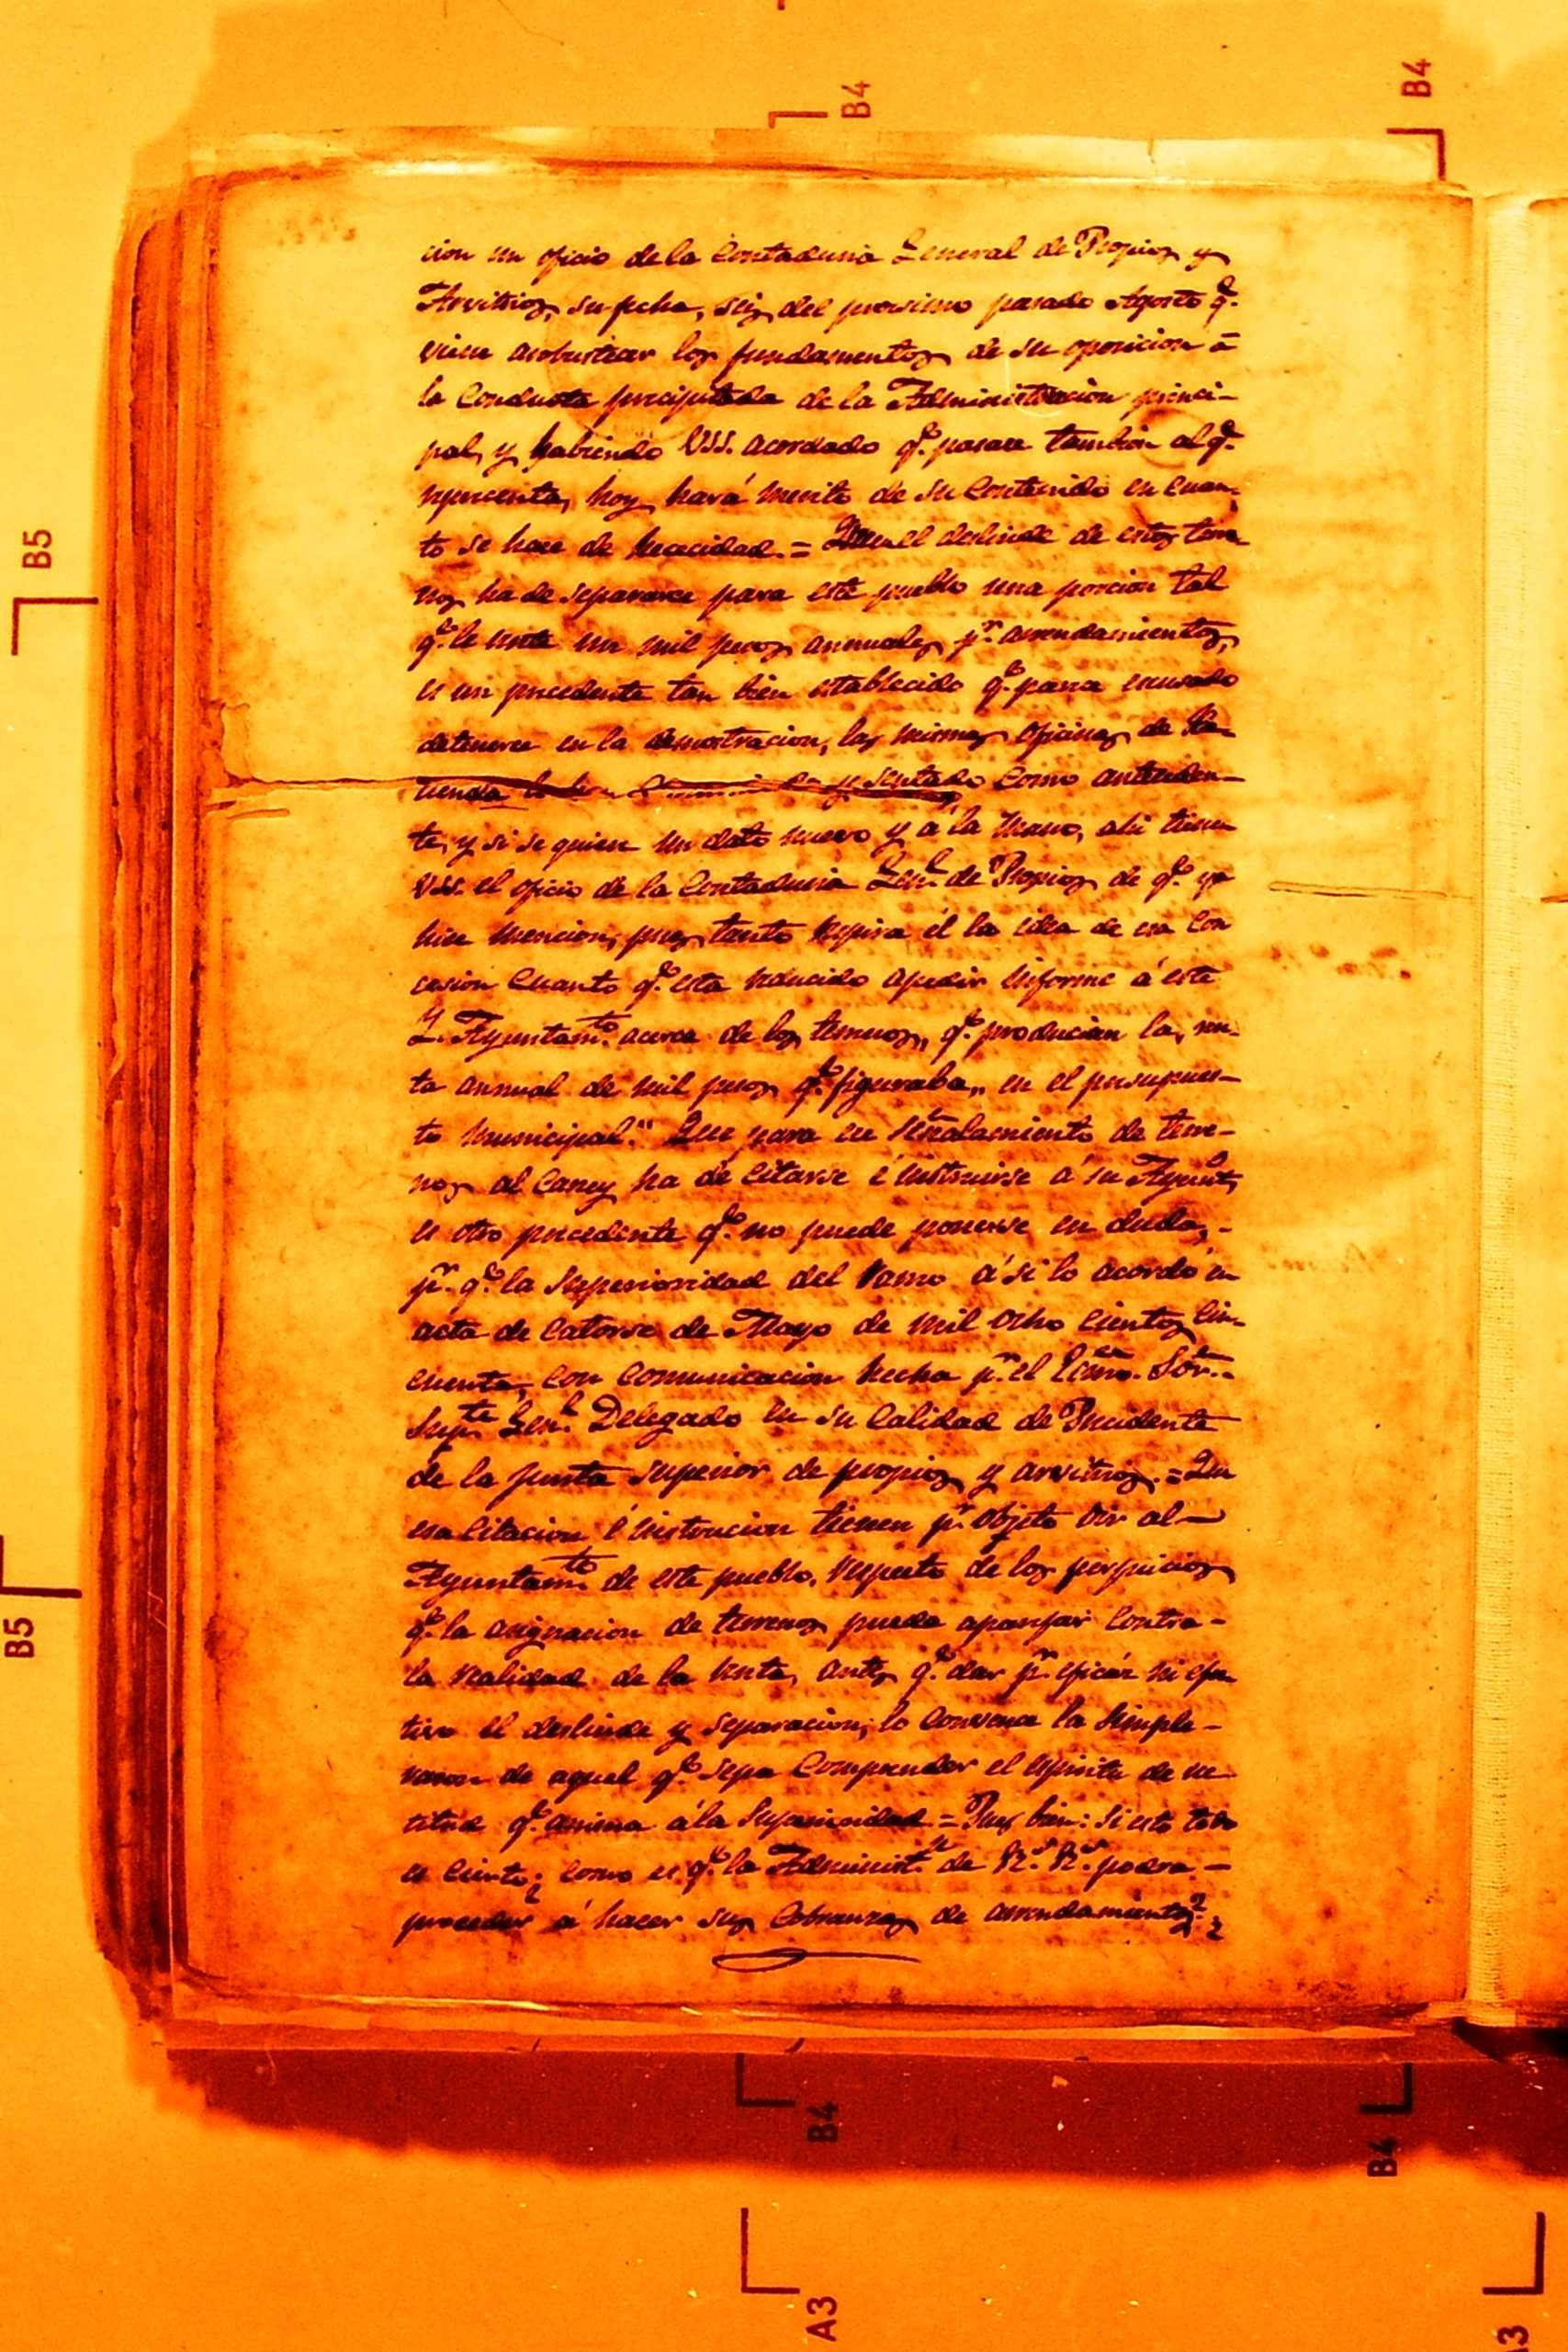 cion un oficio de la Contaduria General de Propios y
Arvitrios, su fecha, seis del procsimo pasado Agosto q.e
viene arobustecer los fundamentos de su oposicion á
la conducta precipitada de la Administracion princi-
pal, y habiendo VSS. acordado q.e pasase tambien al q.e
representa, hoy hará merito de su contenido en cuan-
to se hace de necesidad. = Que en el deslinde de estos terre-
nos ha de separarse para este pueblo una porcion tal
q.e le rente un mil pesos annuales p.r arrendamientos,
es un precedente tan bien establecido q.e parece escusado
detenerse en la demostracion, las mismas Oficinas de Ha-
cienda y sentado como anteceden-
te, y si se quiere un dato nuevo y á la mano, ahi tienen
VSS. el oficio de la Contaduria Gen.l de Propios de q.e ya
hice mencion, pues tanto respira él la idea de esa con
cesion cuanto q.e esta reducido apedir informe á este
Y. Ayuntam.to acerca de los terrenos,, q.e producian la, ren-
ta annual de mil pesos q.e figuraba,, en el presupues-
to municipal." Que para ese señalamiento de terre-
nos al Caney ha de citarse é instruirse á su Ayunt.o
es otro precedente q.e no puede ponerse en duda, -
p.r q.e la Superioridad del Ramo á si lo acordó en
acta de catorse de Mayo de mil ocho cientos cin-
cuenta, con comunicacion hecha p.r el Ecsmo. Sór.
Sup.te Gen.l Delegado en su calidad de Presidente
de la junta superior de propios y arvitrios. = Que
esa citacion é instrucion tienen p.r objeto oir al -
Ayuntam.to de este pueblo, respecto de los perjuicios
q.e la asignacion de terrenos pueda aparejar contra -
la realidad de la renta, antes q.e dar p.r eficáz ni efec
tivo el deslinde y separacion, lo convence la simple -
razon de aquel q.e sepa comprender el espiritu de rec
titud q.e anima á la Superioridad. = Pues bien: si esto todo
es cierto; ¿como es q.e la Administ.n de R.s R.s podra -
proceder á hacer sus cobranzas de arrendamientos?